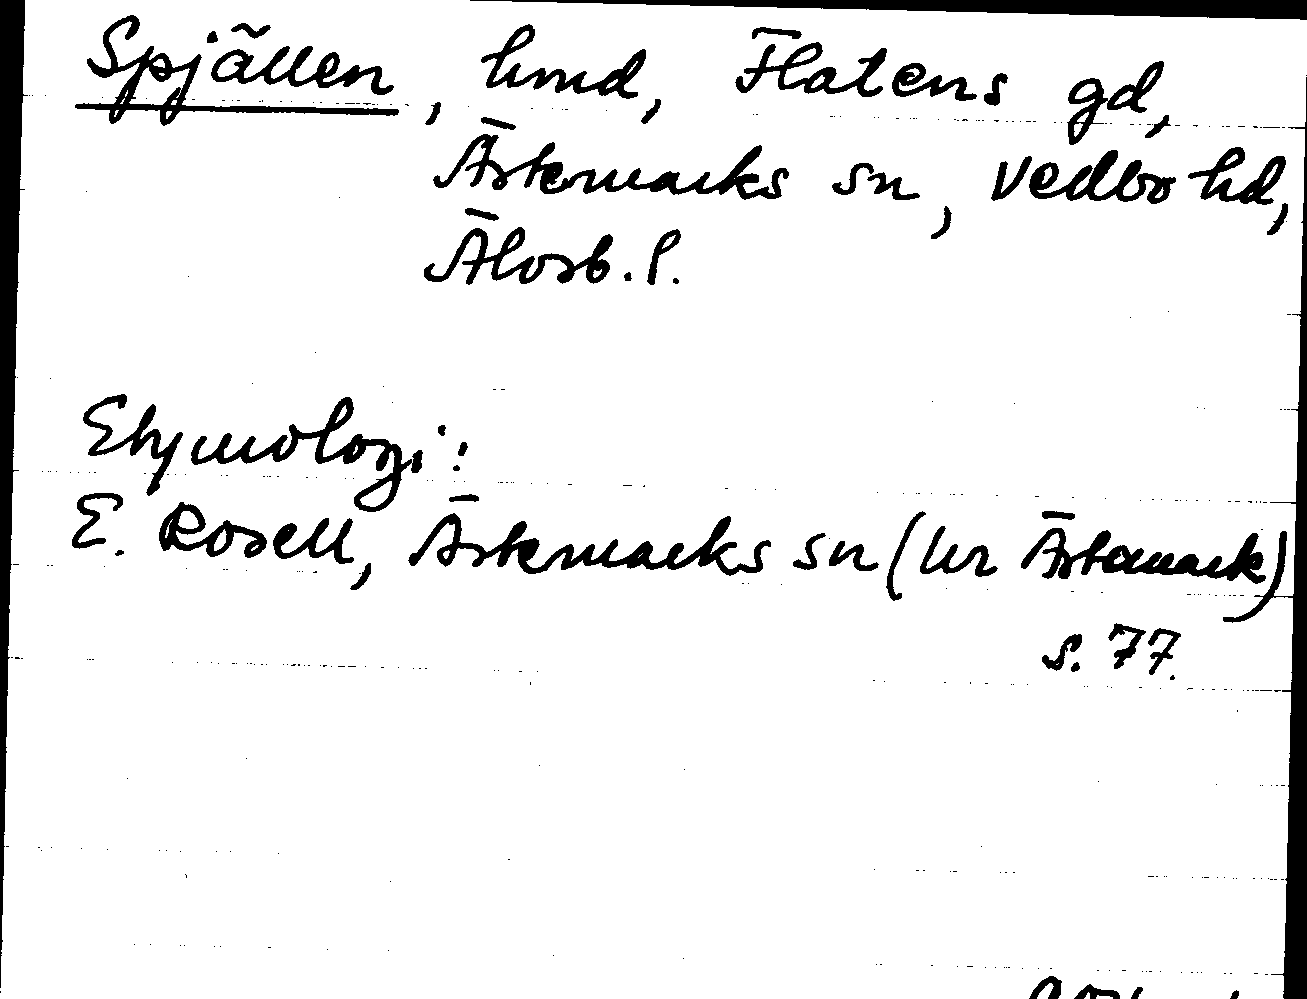 Spjällen, hmd, Flatens gd,
Ärtemarks sn, Vedbo hd,
Älvsb. l.
Etymologi:
E. Rosell, Ärtemarks sn (hr Ärtemark)
s. 77.